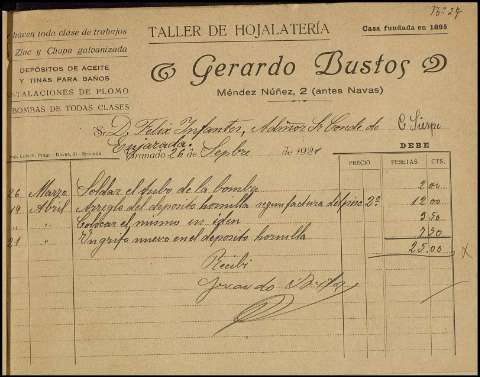 Nº 27
hacen toda clase de trabajos
Zinc y Chapa galvanizada
DEPÓSITOS DE ACEITE
Y TINAS PARA BAÑOS
STALACIONES DE PLOMO
BOMBAS DE TODAS CLASES
TALLER DE HOJALATERÍA
Casa fundada en 1895
Gerardo Bustos
Méndez Núñez, 2 (antes Navas)
S. D. Felix Infantes, Admor Sr Conde de
Granada 26 de Sepbre de 1921
DEBE
PRECIO PESETAS CTS.
26 Marzo Soldar el tubo de la bomba 2 00
19 Abril Arreglo del deposito hornilla segun factura del 2º 12 00
" " Colocar el mismo en iden 3.50
21 " Un grifo nuevo en el deposito hornilla 7 50
25.00
Recibi
Gerardo Bustos